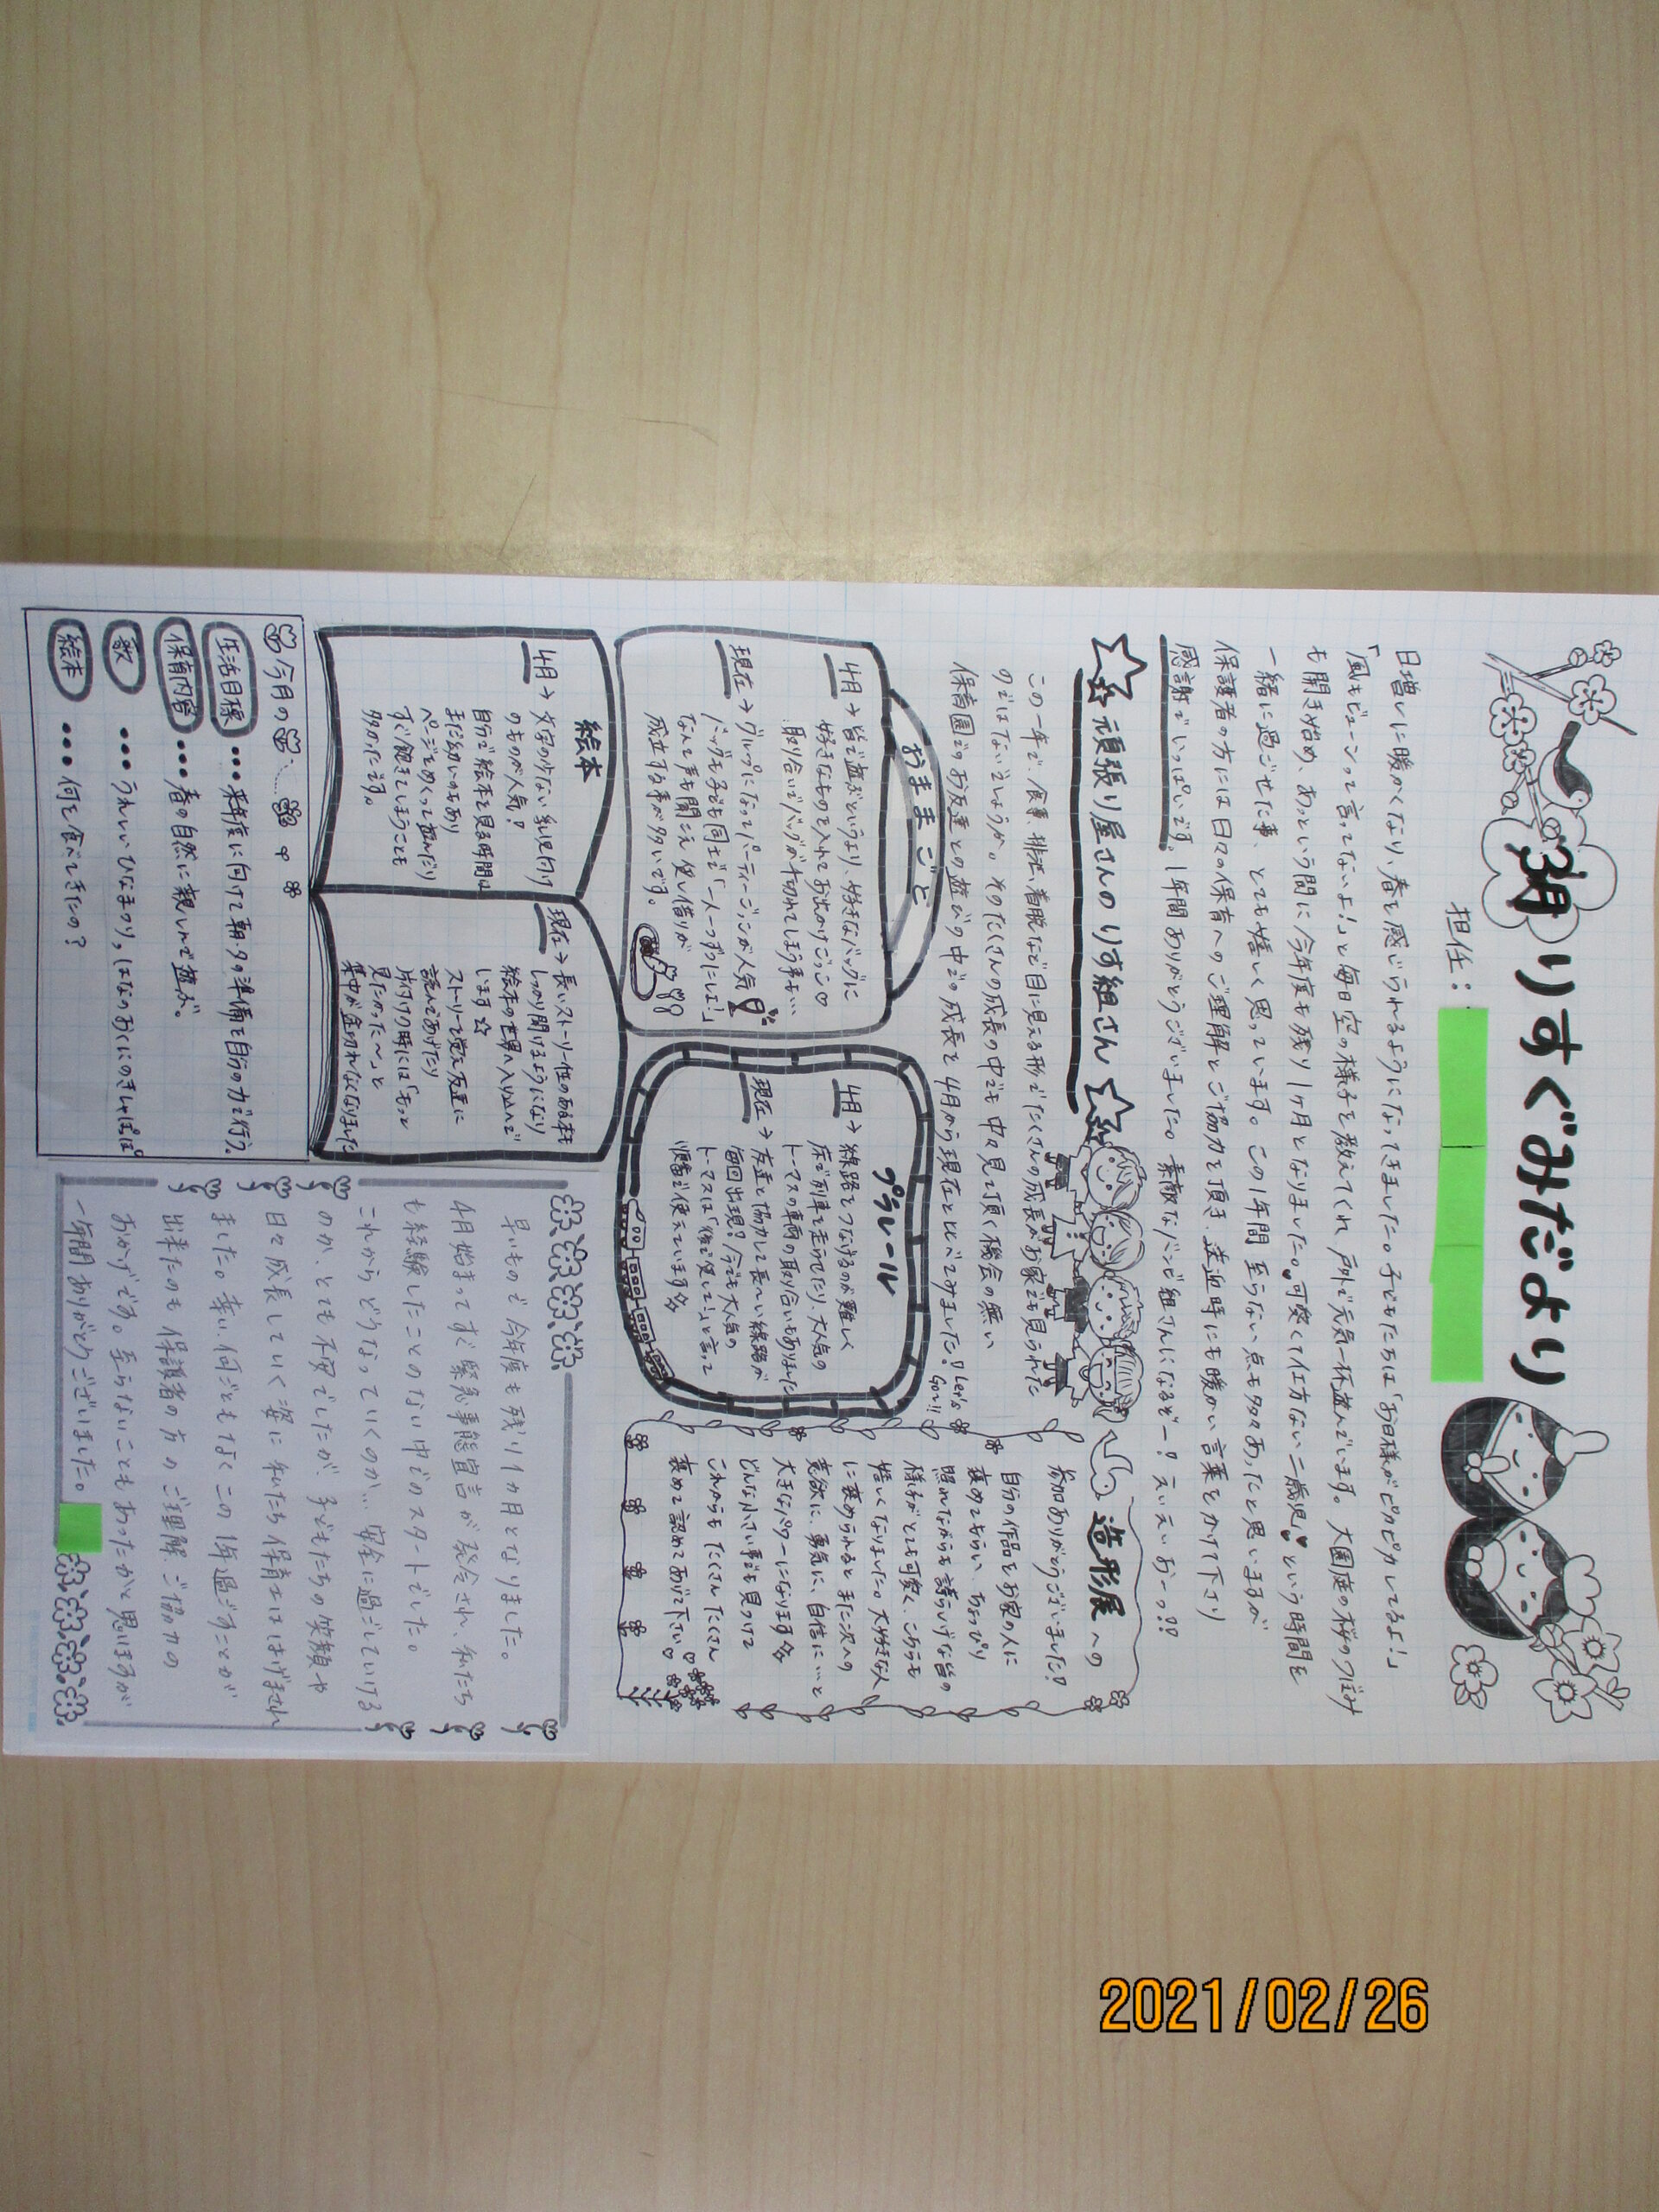 3月 りすぐみだより
担任：
日増しに暖かくなり、春を感じられるようになってきました。子どもたちは「お日様がピカピカしてるよ！」
「風もビューンって言ってないよ！」と毎日空の様子を教えてくれ、戸外で元気一杯遊んでいます。大園庭の桜のつぼみ
も開き始め、あっという間に今年度も残り1ヶ月となりました。可愛くて仕方ない二歳児♥という時間を
一緒に過ごせた事、とても嬉しく思っています。この1年間 至らない点も多々あったと思いますが
保護者の方には日々の保育へのご理解とご協力を頂き、送迎時にも暖かい言葉をかけて下さり
感謝でいっぱいです。1年間ありがとうございました。素敵なバンビ組さんになるぞー！えいえいおーっ!!
☆頑張り屋さんのりす組さん☆
この一年で、食事、排泄、着脱などで目に見える形でたくさんの成長がお家でも見られた
のではないでしょうか。そのたくさんの成長の中でも中々見て頂く機会の無い
保育園でのお友達との遊びの中での成長を4月から現在と比べてみました！Let's Go!!
おままごと
4月→皆で遊ぶというより、好きなバッグに
好きなものを入れてお出かけごっこ♡
取り合いでバッグが千切れてしまう事も…
現在→グループになってパーティーごっこが人気
バッグも子ども同士で「一人一つずつにしよ！」
なんて声も聞こえ 使い借りが
成立する事が多いです。
プラレール
4月→線路をつなげるのが難しく
床で列車を走らせたり、大人気の
トーマスの車両の取り合いもありました
現在→友達と協力して長〜い線路が
毎回出現！今でも大人気の
トーマスは「後で使して！」と言って
順番で使えています
造形展への
参加ありがとうございました！
自分の作品をお家の人に
褒めてもらい、ちょっぴり
照れながらも誇らしげな皆の
様子がとても可愛く、こちらも
嬉しくなりました。大好きな人
に褒められるとまた次への
意欲に、勇気に、自信に…と
大きなパワーになります
どんな小さい事でも見つけて
これからもたくさんたくさん
褒めて認めてあげて下さい。
絵本
4月→文字の少ない乳児向け
のものが人気！
自分で絵本を見る時間は
まだ幼いのもあり
ページをめくって遊んだり
すぐ飽きてしまうことも
多かったです。
現在→長いストーリー性のある本も
しっかり聞けるようになり
絵本の世界へ入り込んで
います☆
ストーリーを覚え友達に
読んであげたり
片付けの時には「もっと
見たかった〜」と
集中が途切れなくなりました
今月の
生活目標…来年度に向けて朝・夕の準備を自分の力で行う。
保育内容…春の自然に親しんで遊ぶ。
歌…うれしいひなまつり、はなのおくにのきしゃぽっぽ
絵本…何を食べてきたの？
早いもので今年度も残り1ヵ月となりました。
4月始まってすぐ緊急事態宣言が発令され、私たち
も経験したことのない中でのスタートでした。
これからどうなっていくのか…安全に過ごしていける
のか、とても不安でしたが、子どもたちの笑顔や
日々成長していく姿に私たち保育士ははげまされ
ました。幸い何ごともなくこの1年過ごすことが
出来たのも保護者の方のご理解、ご協力の
おかげです。至らないこともあったかと思いますが
一年間ありがとうございました。
2021/02/26